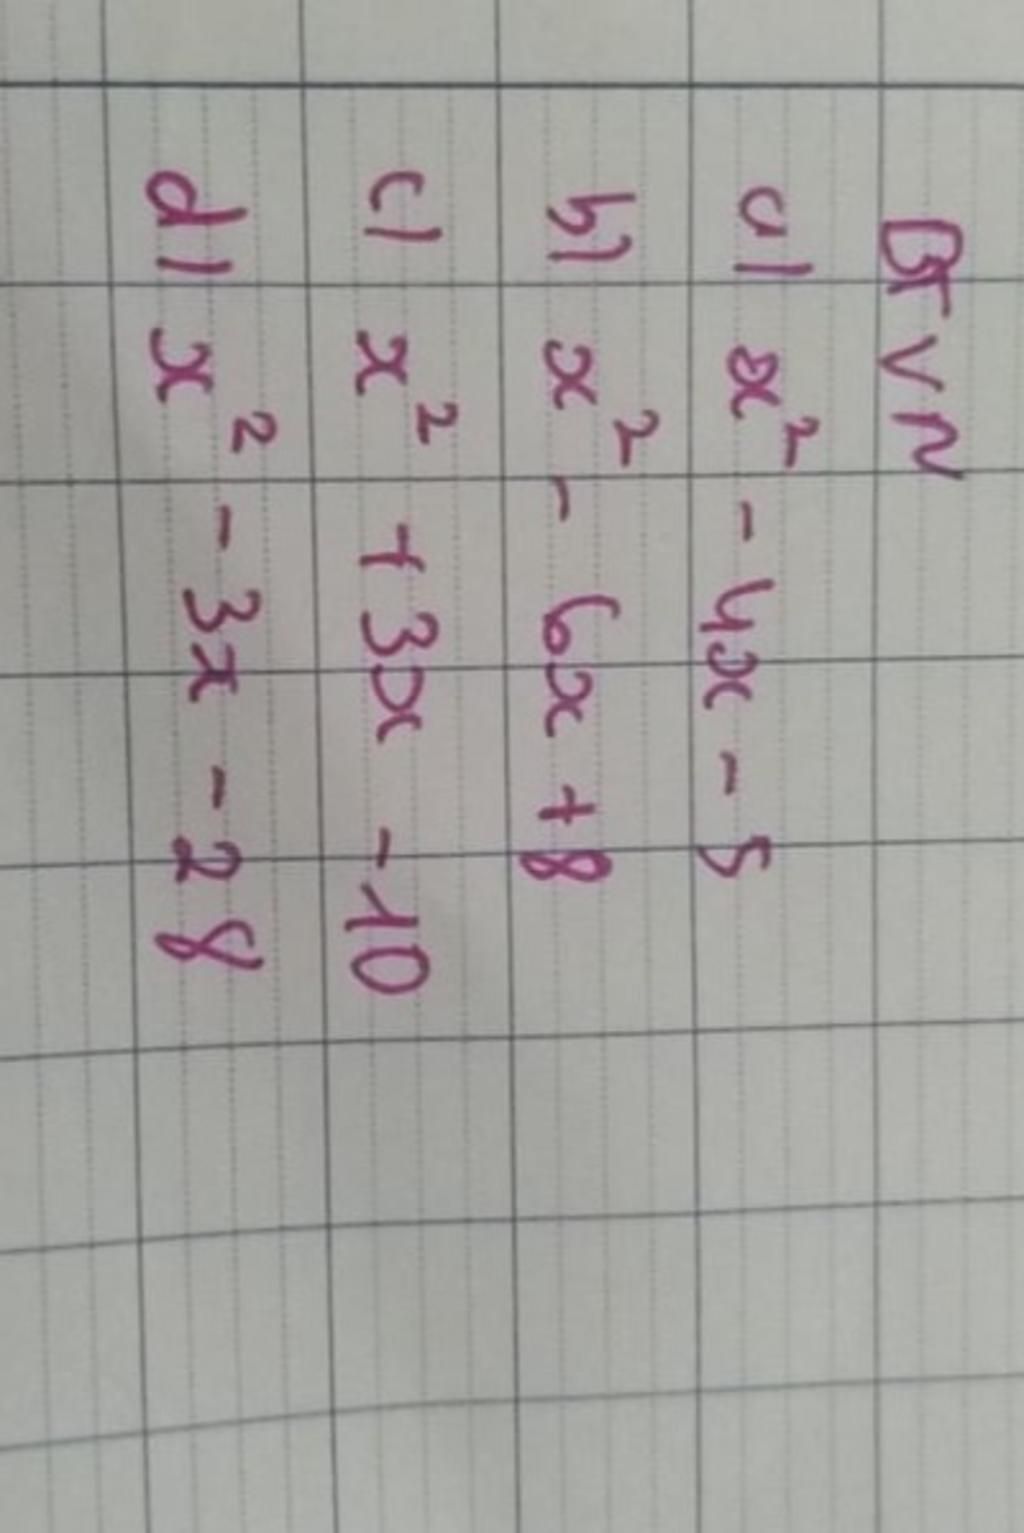 BTVN
a) x² - 4x - 5
b) x² - 6x + 8
c) x² + 3x - 10
d) x² - 3x - 28